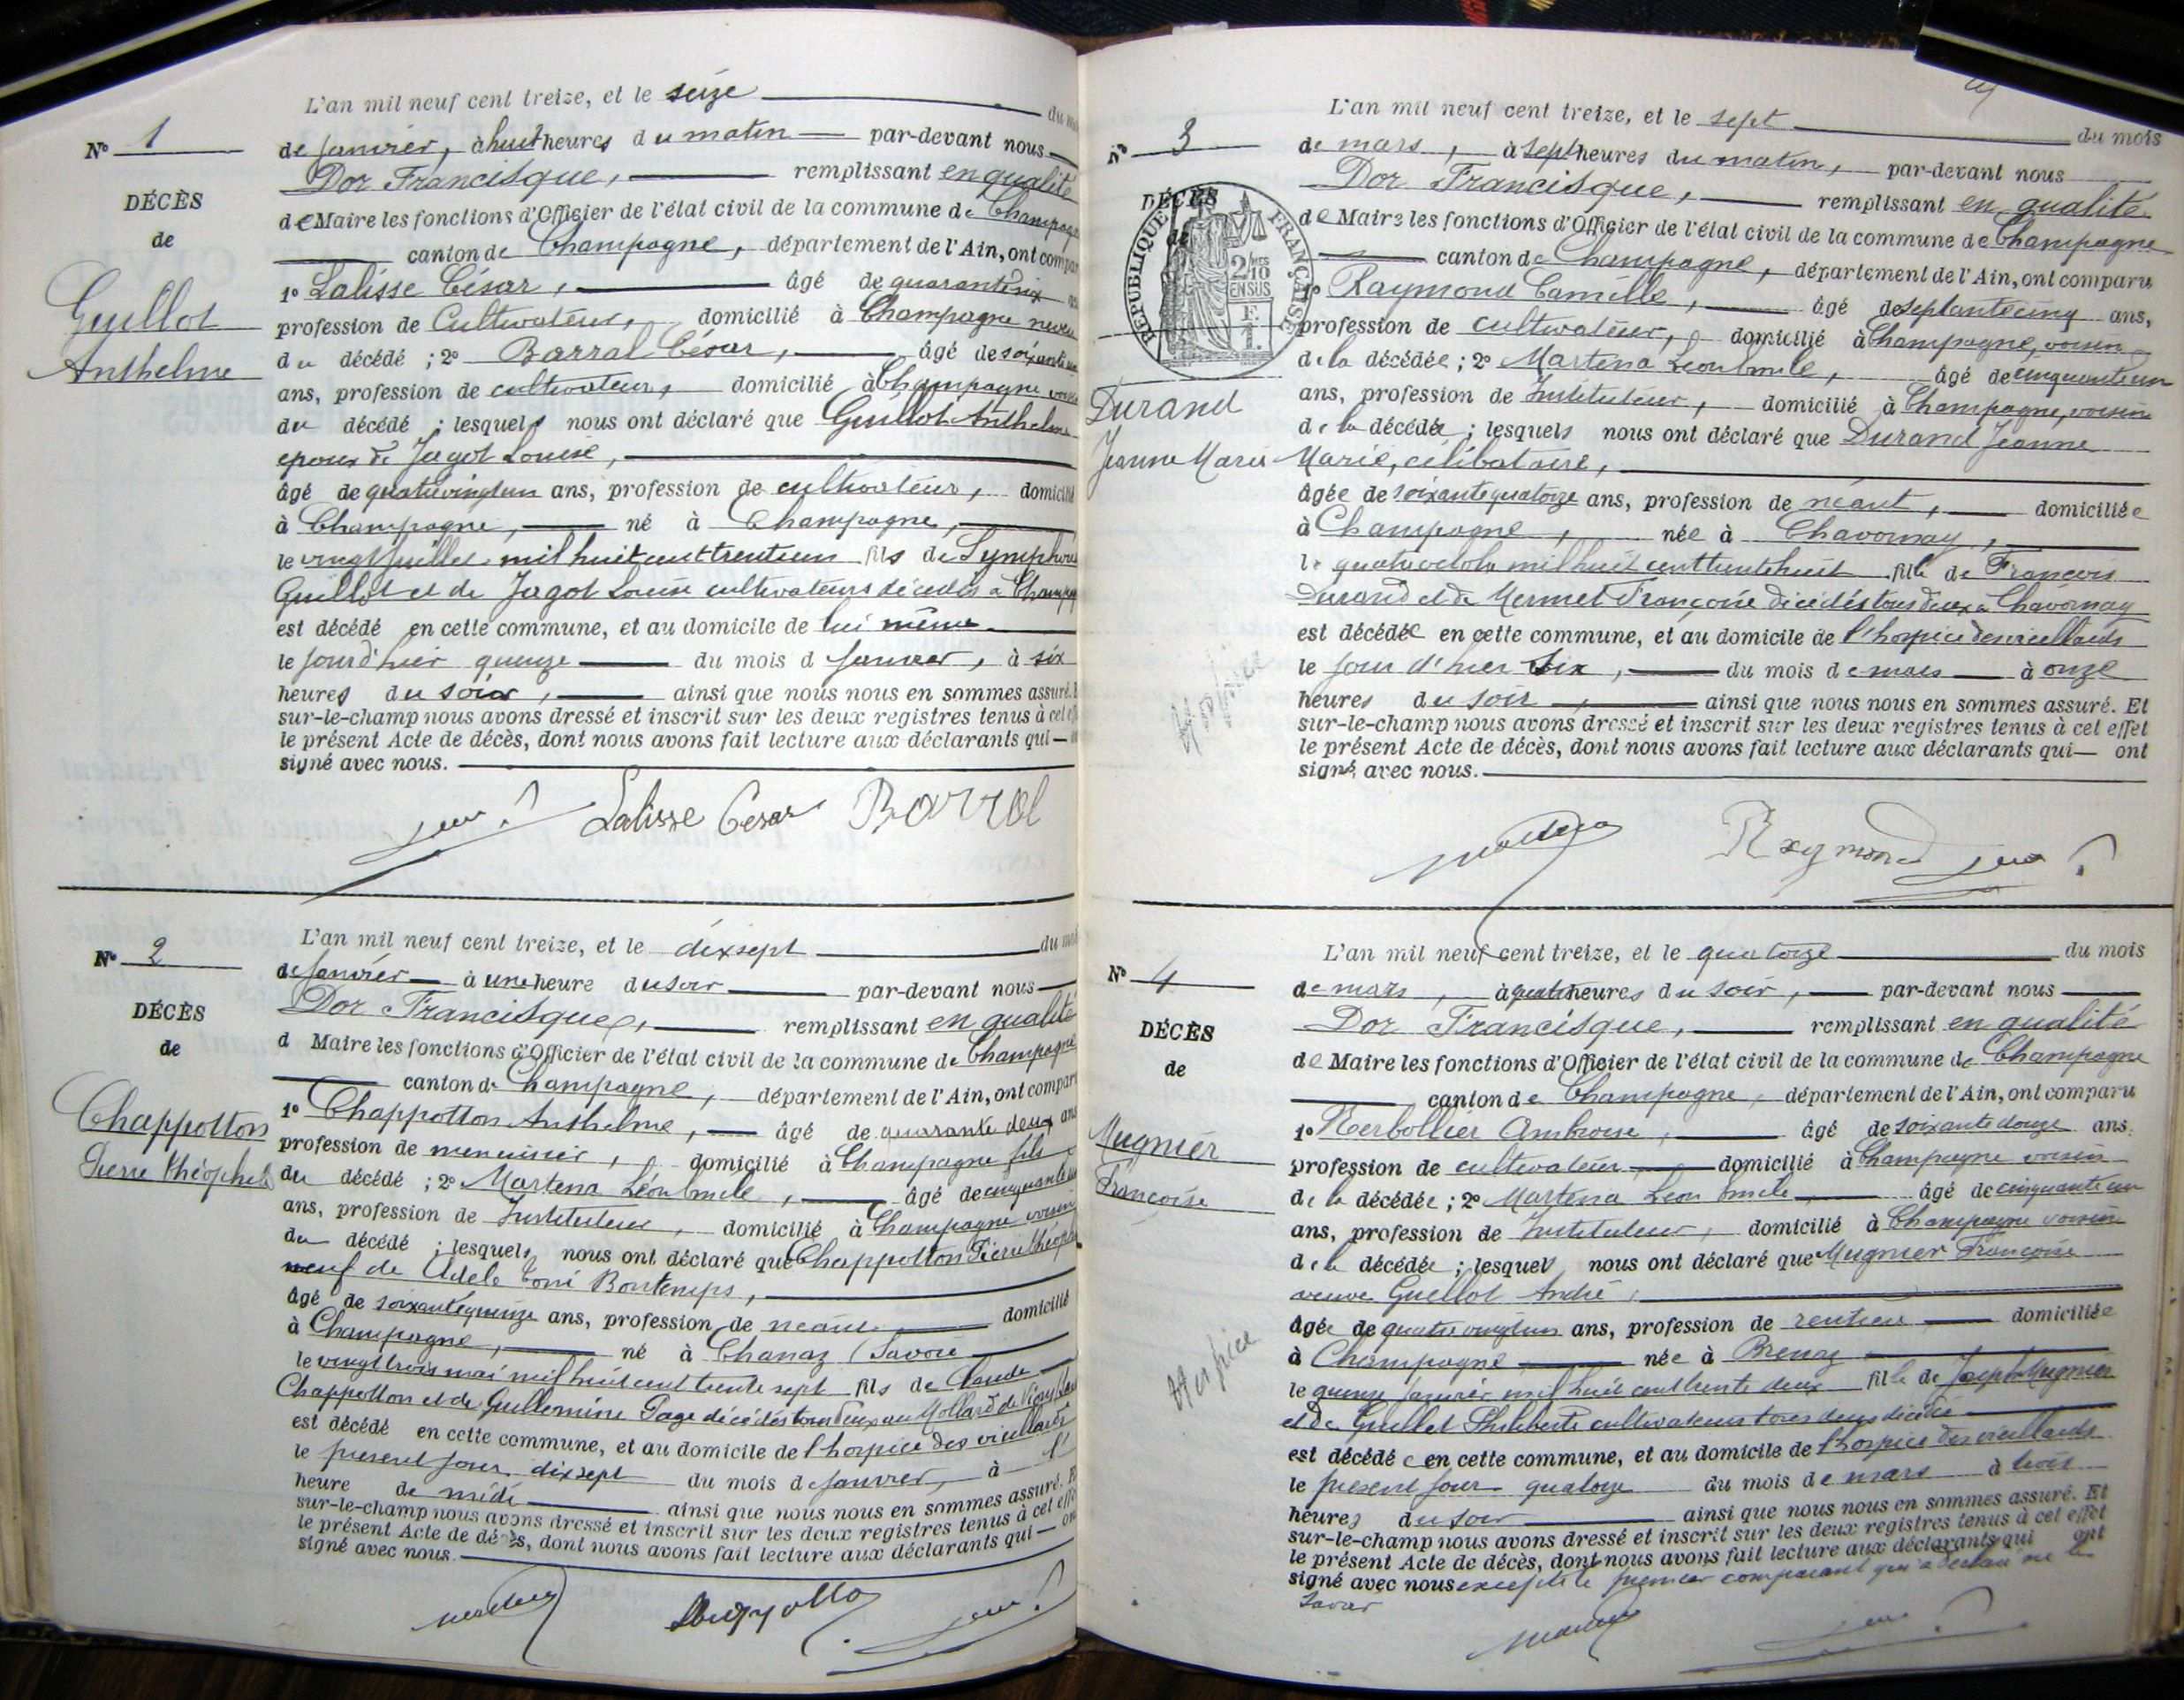 L'an mil neuf cent treize, et le seize du
Nº 1
de Janvier, à huit heures du matin par-devant nous
Dor Francisque, remplissant en qualité
DÉCÈS
de
de Maire les fonctions d'Officier de l'état civil de la commune de
canton de Champagne, département de l'Ain, ont
1º Lalisse César, âgé de
Guillot
Anthelme
profession de Cultivateur, domicilié à Champagne neveu
du décédé ; 2º Barral César, âgé de
ans, profession de cultivateur, domicilié à Champagne
du décédé ; lesquels nous ont déclaré que Guillot Anthelme
époux de Jagot Louise,
âgé de quatrevingtun ans, profession de cultivateur,
à Champagne, né à Champagne,
le vingt Juillet mil huit cent trente un fils de
Guillot et de Jagot Louise cultivateurs décédés à
est décédé en cette commune, et au domicile de lui même
le jour d'hier quinze du mois d Janvier, à six
heures du soir, ainsi que nous nous en sommes assuré.
sur-le-champ nous avons dressé et inscrit sur les deux registres tenus à cet
le présent Acte de décès, dont nous avons fait lecture aux déclarants qui —
signé avec nous.
Lalisse César Barral
L'an mil neuf cent treize, et le dixsept du
Nº 2
de Janvier à une heure du soir par-devant nous
Dor Francisque, remplissant en qualité
DÉCÈS
de
d Maire les fonctions d'Officier de l'état civil de la commune de Champagne
canton de Champagne, département de l'Ain, ont
1º Chappotton Anthelme, âgé de quarante deux ans
Chappotton
Pierre Théophile
profession de menuisier, domicilié à Champagne fils
du décédé ; 2º Martena Léon Emile, âgé de
ans, profession de Instituteur, domicilié à Champagne voisin
du décédé ; lesquels nous ont déclaré que Chappotton Pierre
veuf de Adèle Bontemps,
âgé de soixantequinze ans, profession de néant domicilié
à Champagne, né à Chanaz (Savoie
le vingt trois mai mil huit cent trente sept fils de Claude
Chappotton et de Guillemine Page décédés tous deux au Mollard de
est décédé en cette commune, et au domicile de l'hospice des vieillards
le present jour dixsept du mois de Janvier, à l'
heure de midi ainsi que nous nous en sommes assuré.
sur-le-champ nous avons dressé et inscrit sur les deux registres tenus à cet
le présent Acte de décès, dont nous avons fait lecture aux déclarants qui —
signé avec nous.
L'an mil neuf cent treize, et le sept du mois
Nº 3
de mars, à sept heures du matin, par-devant nous
Dor Francisque, remplissant en qualité
DÉCÈS
de
RÉPUBLIQUE FRANÇAISE
2/10
EN SUS
de Maire les fonctions d'Officier de l'état civil de la commune de Champagne
canton de Champagne, département de l'Ain, ont comparu
1º Raymond Camille, âgé de septantecinq ans,
profession de cultivateur, domicilié à Champagne, voisin
de la décédée ; 2º Martena Léon Emile, âgé de cinquante un
Durand
Jeanne Marie
ans, profession de Instituteur, domicilié à Champagne, voisin
de la décédée ; lesquels nous ont déclaré que Durand Jeanne
Marie, célibataire,
âgée de soixantequatorze ans, profession de néant, domiciliée
à Champagne, née à Chavornay,
le quatre octobre mil huit cent trente huit fille de François
Durand et de Mermet Françoise décédés tous deux à Chavornay
est décédée en cette commune, et au domicile de l'hospice des vieillards
Hospice
le jour d'hier six, du mois de mars à onze
heures du soir, ainsi que nous nous en sommes assuré. Et
sur-le-champ nous avons dressé et inscrit sur les deux registres tenus à cet effet
le présent Acte de décès, dont nous avons fait lecture aux déclarants qui — ont
signé avec nous.
Raymond
L'an mil neuf cent treize, et le quatorze du mois
Nº 4
de mars, à quatre heures du soir, par-devant nous
Dor Francisque, remplissant en qualité
DÉCÈS
de
de Maire les fonctions d'Officier de l'état civil de la commune de Champagne
canton de Champagne, département de l'Ain, ont comparu
1º Herbollier Ambroise, âgé de soixante douze ans.
Mugnier
Françoise
profession de cultivateur domicilié à Champagne voisin
de la décédée ; 2º Martena Léon Emile, âgé de cinquante un
ans, profession de Instituteur, domicilié à Champagne voisin
de la décédée ; lesquels nous ont déclaré que Mugnier Françoise
veuve Guillot André,
âgée de quatre vingtun ans, profession de domiciliée
Hospice
à Champagne née à Brenaz
le quinze Janvier mil huit cent trente deux fille de Joseph Mugnier
et de Guillet Philiberte cultivateurs tous deux
est décédée en cette commune, et au domicile de l'hospice des vieillards
le present jour quatorze du mois de mars à trois
heures du soir ainsi que nous nous en sommes assuré. Et
sur-le-champ nous avons dressé et inscrit sur les deux registres tenus à cet effet
le présent Acte de décès, dont nous avons fait lecture aux déclarants qui ont
signé avec nous excepté le premier comparant qui a déclaré ne le
savoir